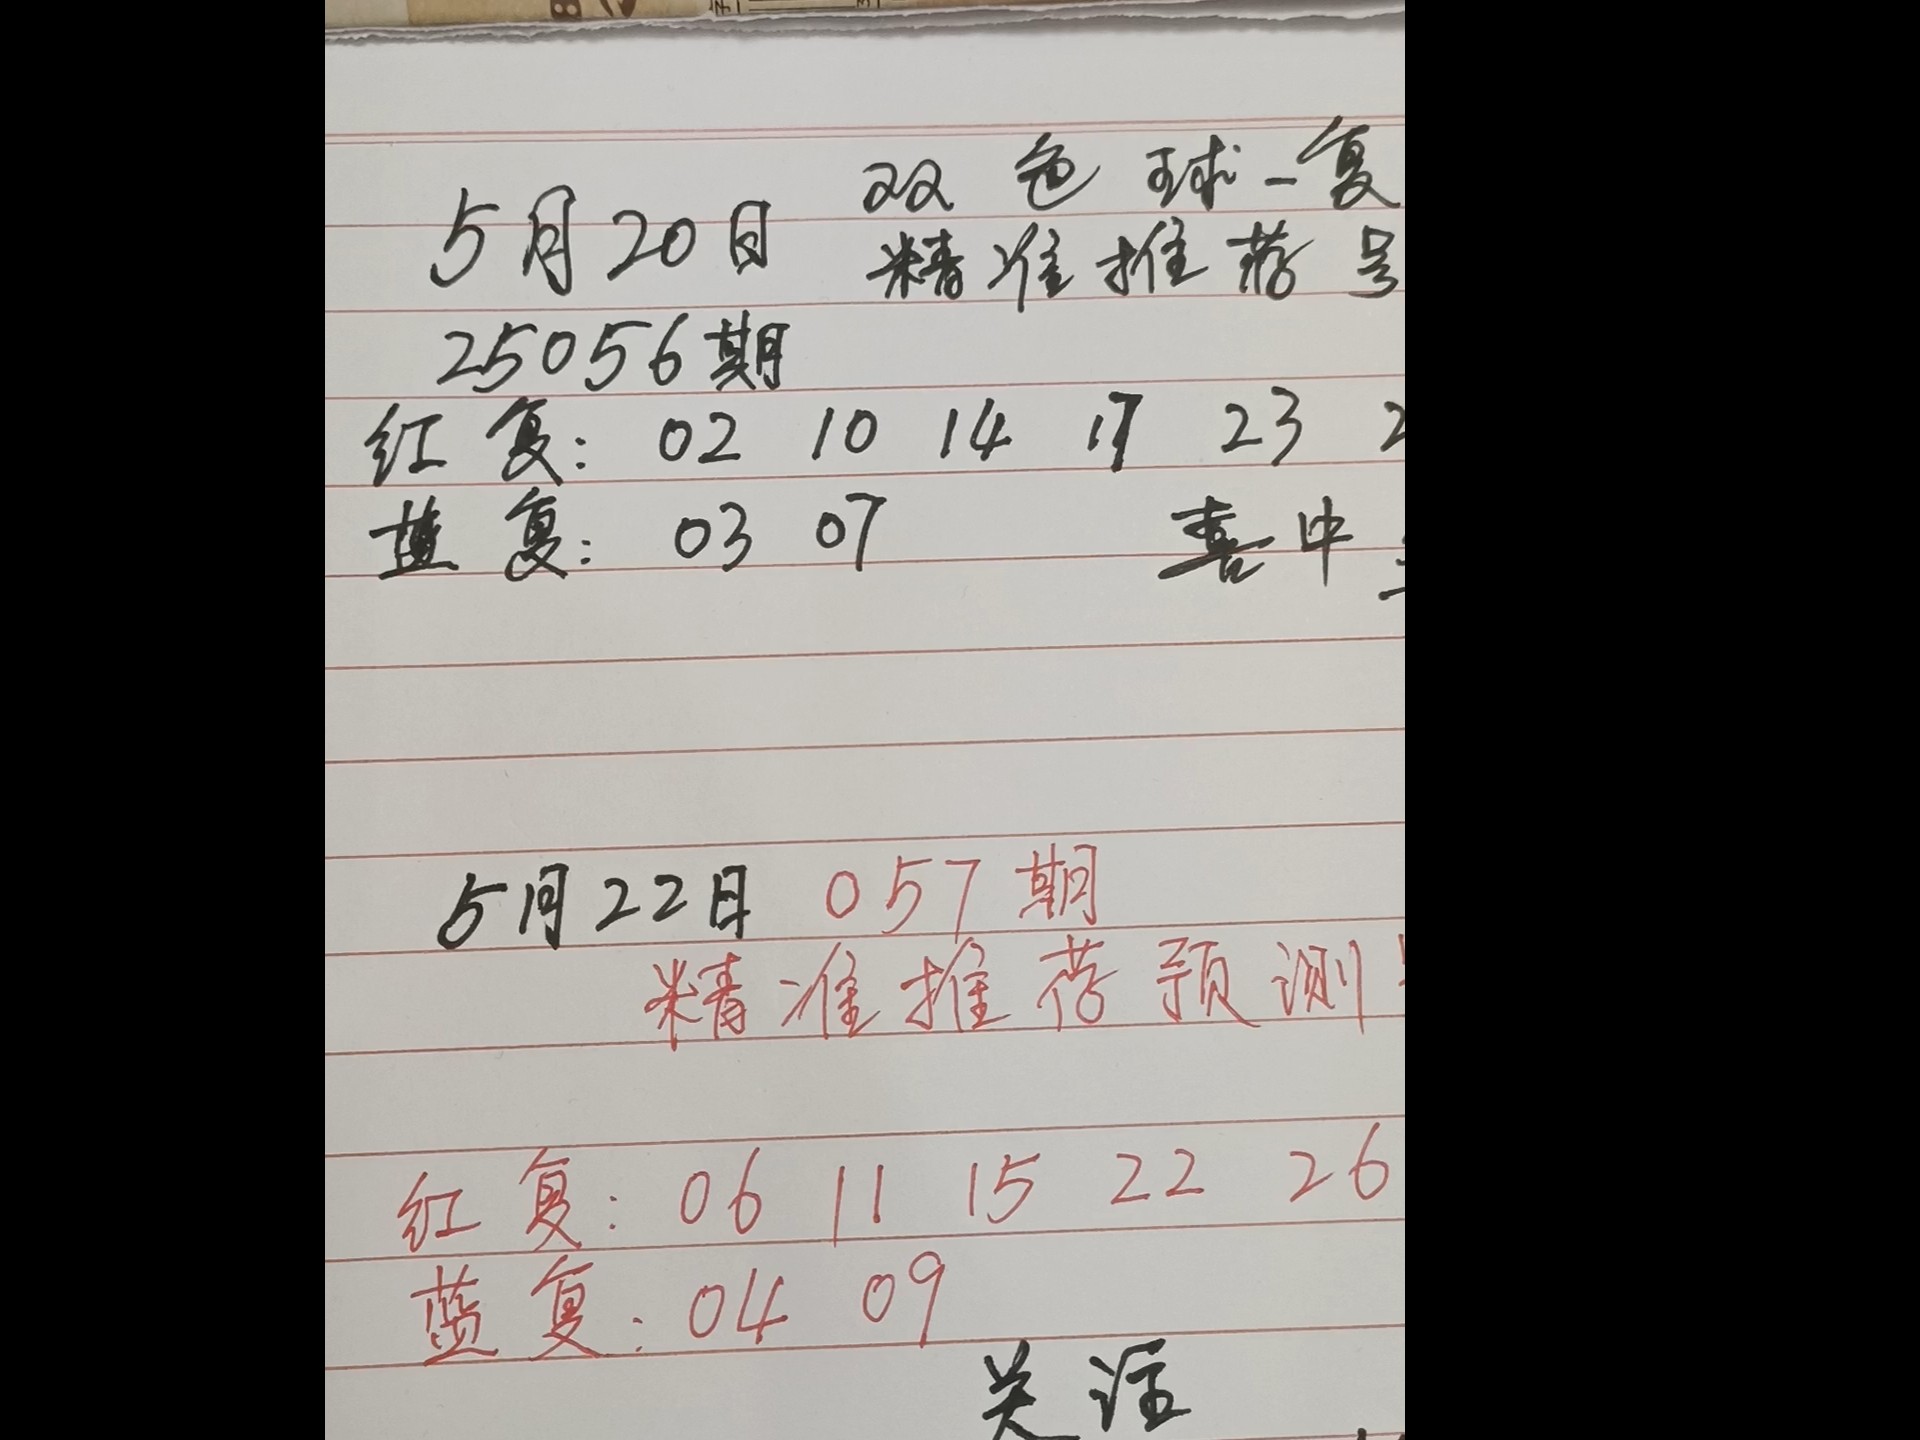 双色球-复
5月20日 精准推荐号
25056期
红复: 02 10 14 17 23 2
蓝复: 03 07 喜中
5月22日 057期
精准推荐预测
红复: 06 11 15 22 26
蓝复: 04 09
关注